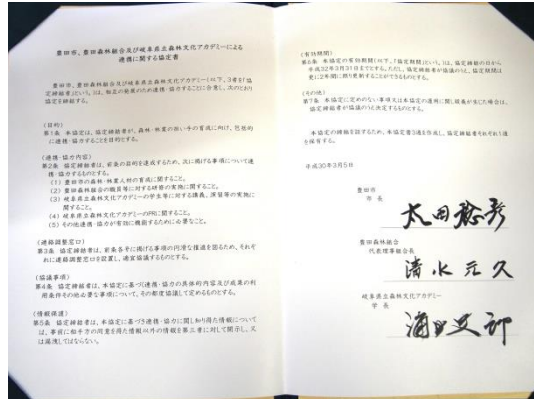 豊田市、豊田森林組合及び岐阜県立森林文化アカデミーによる
連携に関する協定書
豊田市、豊田森林組合及び岐阜県立森林文化アカデミー(以下、3者を「協
定締結者」という。)は、相互の発展のため連携・協力することに合意し、次のとおり
協定を締結する。
(目的)
第1条 本協定は、協定締結者が、森林・林業の担い手の育成に向け、包括的
に連携・協力することを目的とする。
(連携・協力内容)
第2条 協定締結者は、前条の目的を達成するため、次に掲げる事項について連
携・協力するものとする。
(1) 豊田市の森林・林業人材の育成に関すること。
(2) 豊田森林組合の職員等に対する研修の実施に関すること。
(3) 岐阜県立森林文化アカデミーの学生等に対する講義、演習等の実施に
関すること。
(4) 岐阜県立森林文化アカデミーのPRに関すること。
(5) その他連携・協力が有効に機能するために必要なこと。
(連絡調整窓口)
第3条 協定締結者は、前条各号に掲げる事項の円滑な推進を図るため、それぞ
れに連絡調整窓口を設置し、適宜協議するものとする。
(協議事項)
第4条 協定締結者は、本協定に基づく連携・協力の具体的内容及び成果の利
用条件その他必要な事項について、その都度協議して定めるものとする。
(情報保護)
第5条 協定締結者は、本協定に基づき連携・協力に関し知り得た情報について
は、事前に相手方の同意を得た情報以外の情報を第三者に対して開示し、又
は漏洩してはならない。
(有効期間)
第6条 本協定の有効期間(以下、「協定期間」という。)は、協定締結の日から
平成32年3月31日までとする。ただし、協定締結者が協議のうえ、協定期間は
更に2年間に限り更新することができるものとする。
(その他)
第7条 本協定に定めのない事項又は本協定の運用に関し疑義が生じた場合は、
協定締結者が協議のうえ決定するものとする。
本協定の締結を証するため、本協定書3通を作成し、協定締結者それぞれ1通
を保有する。
平成30年3月5日
豊田市
市 長
太田稔彦
豊田森林組合
代表理事組合長
清水元久
岐阜県立森林文化アカデミー
学 長